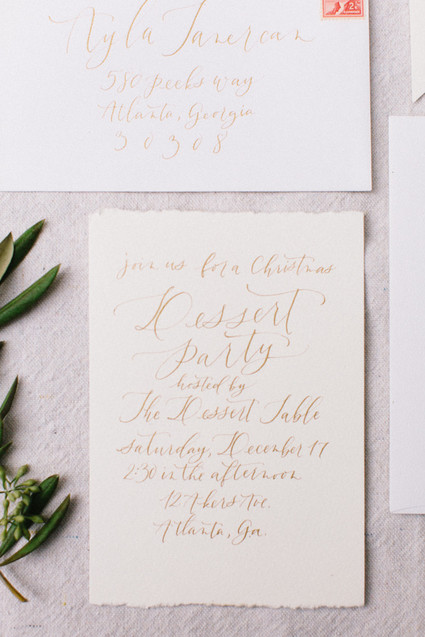 Nyla
580 peeks way
Atlanta, Georgia
30308
join us for a Christmas
Dessert
party
hosted by
The Dessert Table
saturday, December 17
2:30 in the afternoon
12 Akers Ave.
Atlanta, Ga.